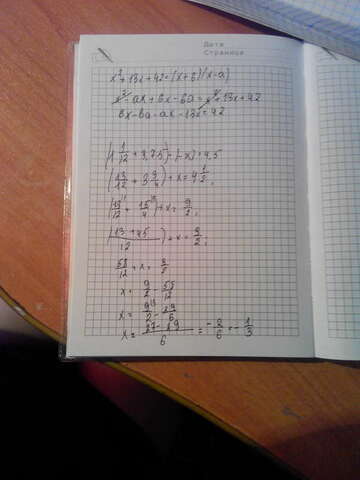 Дата
Страница
x² + 13x + 42 = (x + 6)(x - a)
x² - ax + 6x - 6a = x² + 13x + 42
6x - 6a - ax - 13x = 42
(1 1/12 + 3,75) - (-x) = 4,5
(13/12 + 3 3/4) + x = 4 1/2
(13/12 + 15/4) + x = 9/2
(13 + 45)/12 + x = 9/2
58/12 + x = 9/2
x = 9/2 - 58/12
x = 9/2 - 29/6
x = (27 - 29)/6 = -2/6 = -1/3